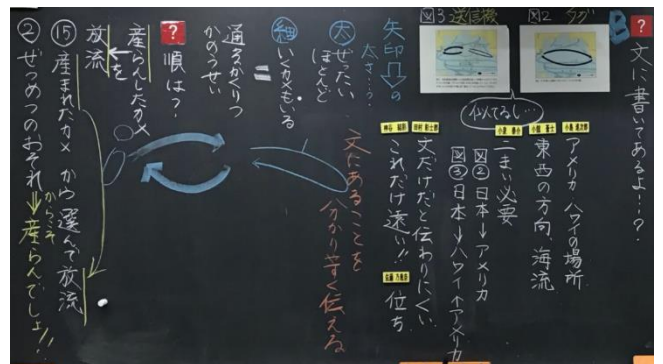 B ? 文に書いてあるよ!!?
図2 タグ
図3 送信機
似てるし…
アメリカ ハワイの場所
東西の方向、海流
二まい必要
図② 日本→アメリカ
図③ 日本→ハワイ↑アメリカ
文だけだと伝わりにくい
これだけ遠い!! 位ち
文にあることを
分かりやすく伝える
矢印⇩の
太さ…?
太 ぜったい
ほとんど
細 いくカメもいる
=
通るかくりつ
かのうせい
? 順は?
産らんしたカメ
を
放流
⑮ 産まれたカメから選んで放流
② ぜつめつのおそれ→産らんでしょ!!
からこそ